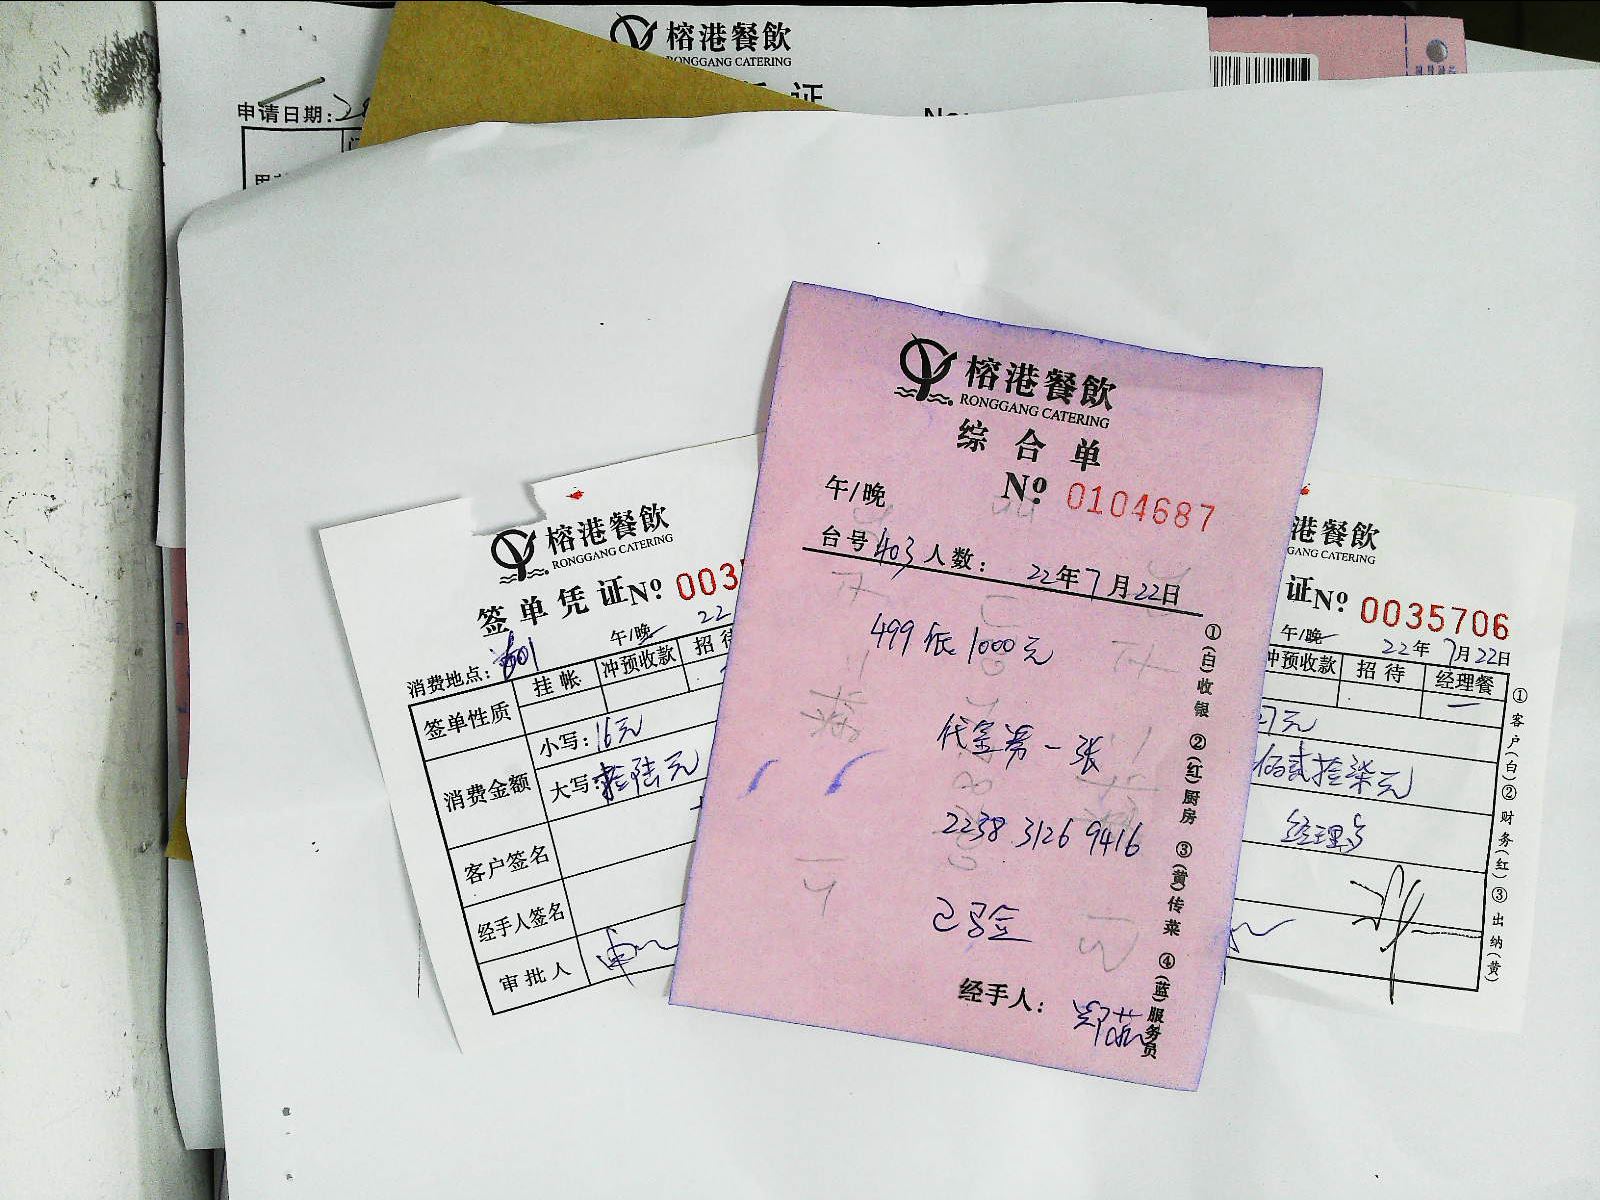 榕港餐飲
RONGGANG CATERING
证
申请日期:
榕港餐飲
RONGGANG CATERING
综合单
Nº 0104687
午/晚
台号 403 人数: 22年7月22日
499 抵 1000元
代金券一张
2238 3126 9416
已验
经手人:
①(白)收银 ②(红)厨房 ③(黄)传菜 ④(蓝)服务员
榕港餐飲
RONGGANG CATERING
签单凭证 Nº 003
午/晚 22
消费地点:
签单性质 挂帐 冲预收款 招待
消费金额 小写: 16元
大写: 拾陆元
客户签名
经手人签名
审批人
港餐飲
GANG CATERING
证 Nº 0035706
午/晚 22年7月22日
冲预收款 招待 经理餐
27元
佰贰拾柒元
①客户(白)②财务(红)③出纳(黄)